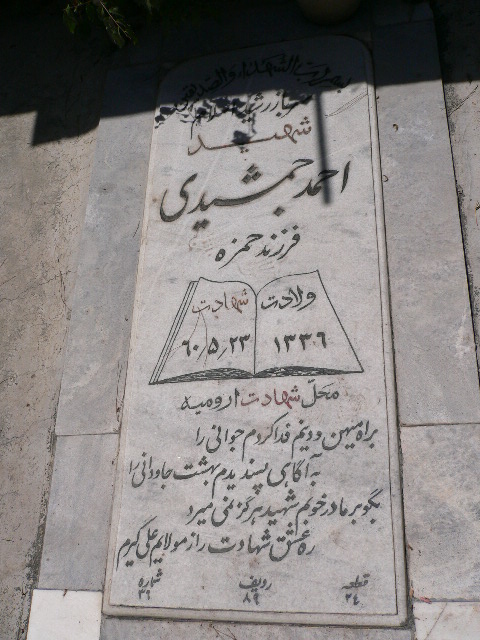 بسم رب الشهداء و الصدیقین
سرباز رشید اسلام
شهید
احمد جمشیدی
فرزند حمزه
ولادت شهادت
۱۳۳۶ ۶۰/۵/۲۳
محل شهادت ارومیه
براه میهن و دینم فدا کردم جوانی را
به آگاهی پسندیدم بهشت جاودانی را
بگو بر مادر خوبم شهید هرگز نمی میرد
ره عشق شهادت را ز مولایم علی گیرم
قطعه ردیف شماره
۲۴ ۸۹ ۳۹